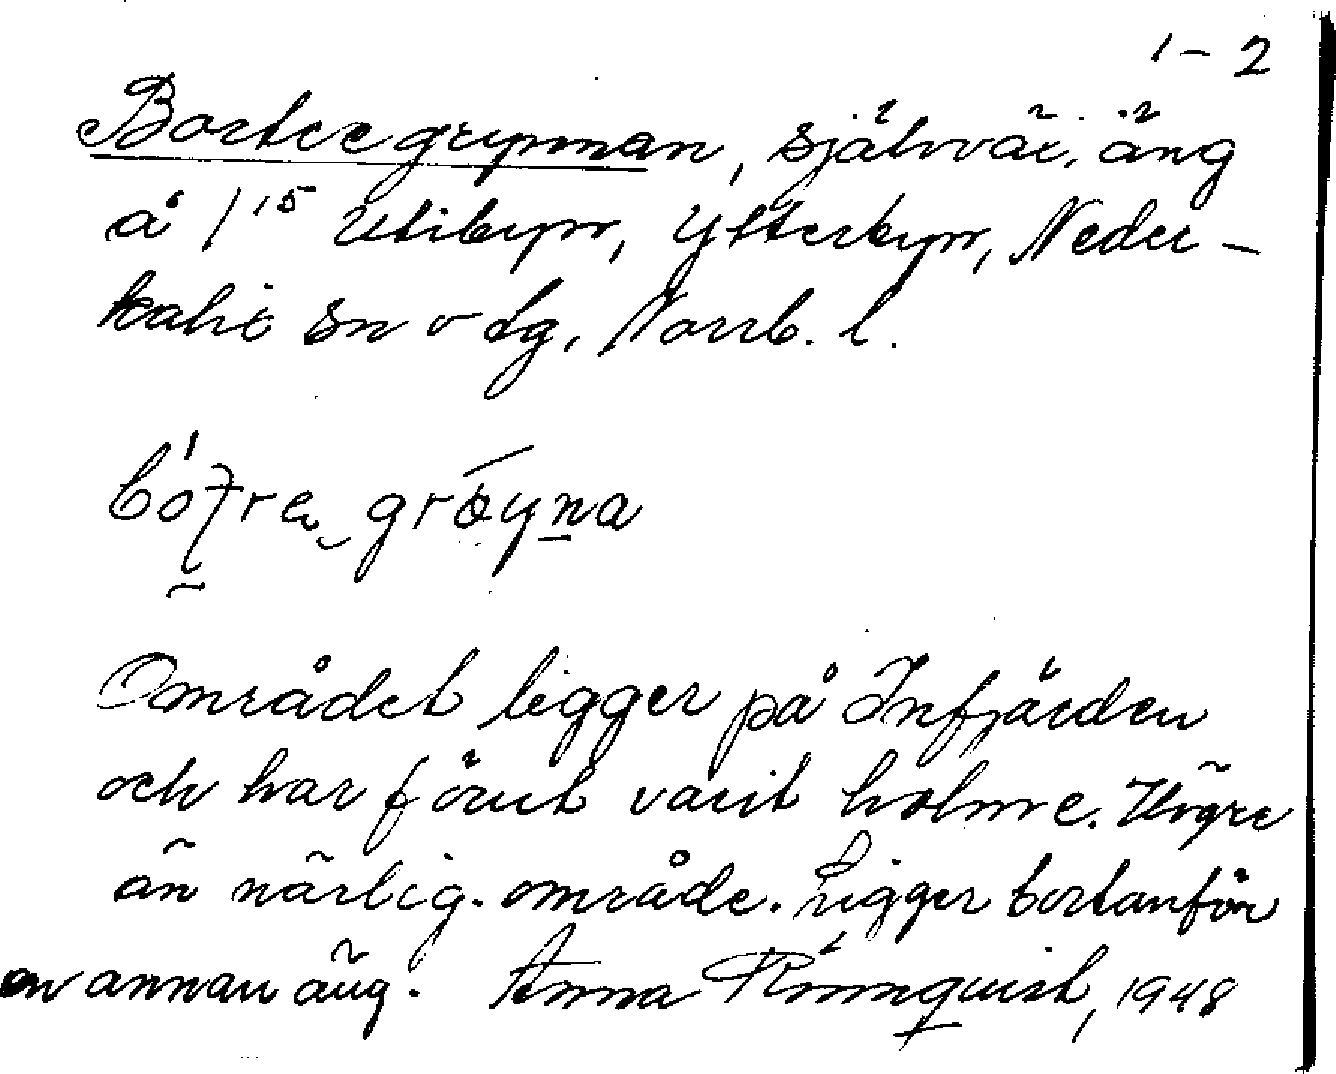 1-2
Bortregrynnan, självväx. äng
å 1¹⁵ Utibyn, Ytterbyn, Neder-
kalix sn o tg, Norrb. l.
Området ligger på Infjärden
och har förut varit holme. Högre
än närlig. område. Ligger bortanför
en annan äng. Anna Rönnquist, 1948